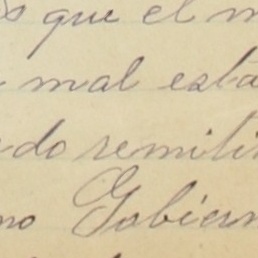 s que el m
mal esta
do remiti
no Gobiern